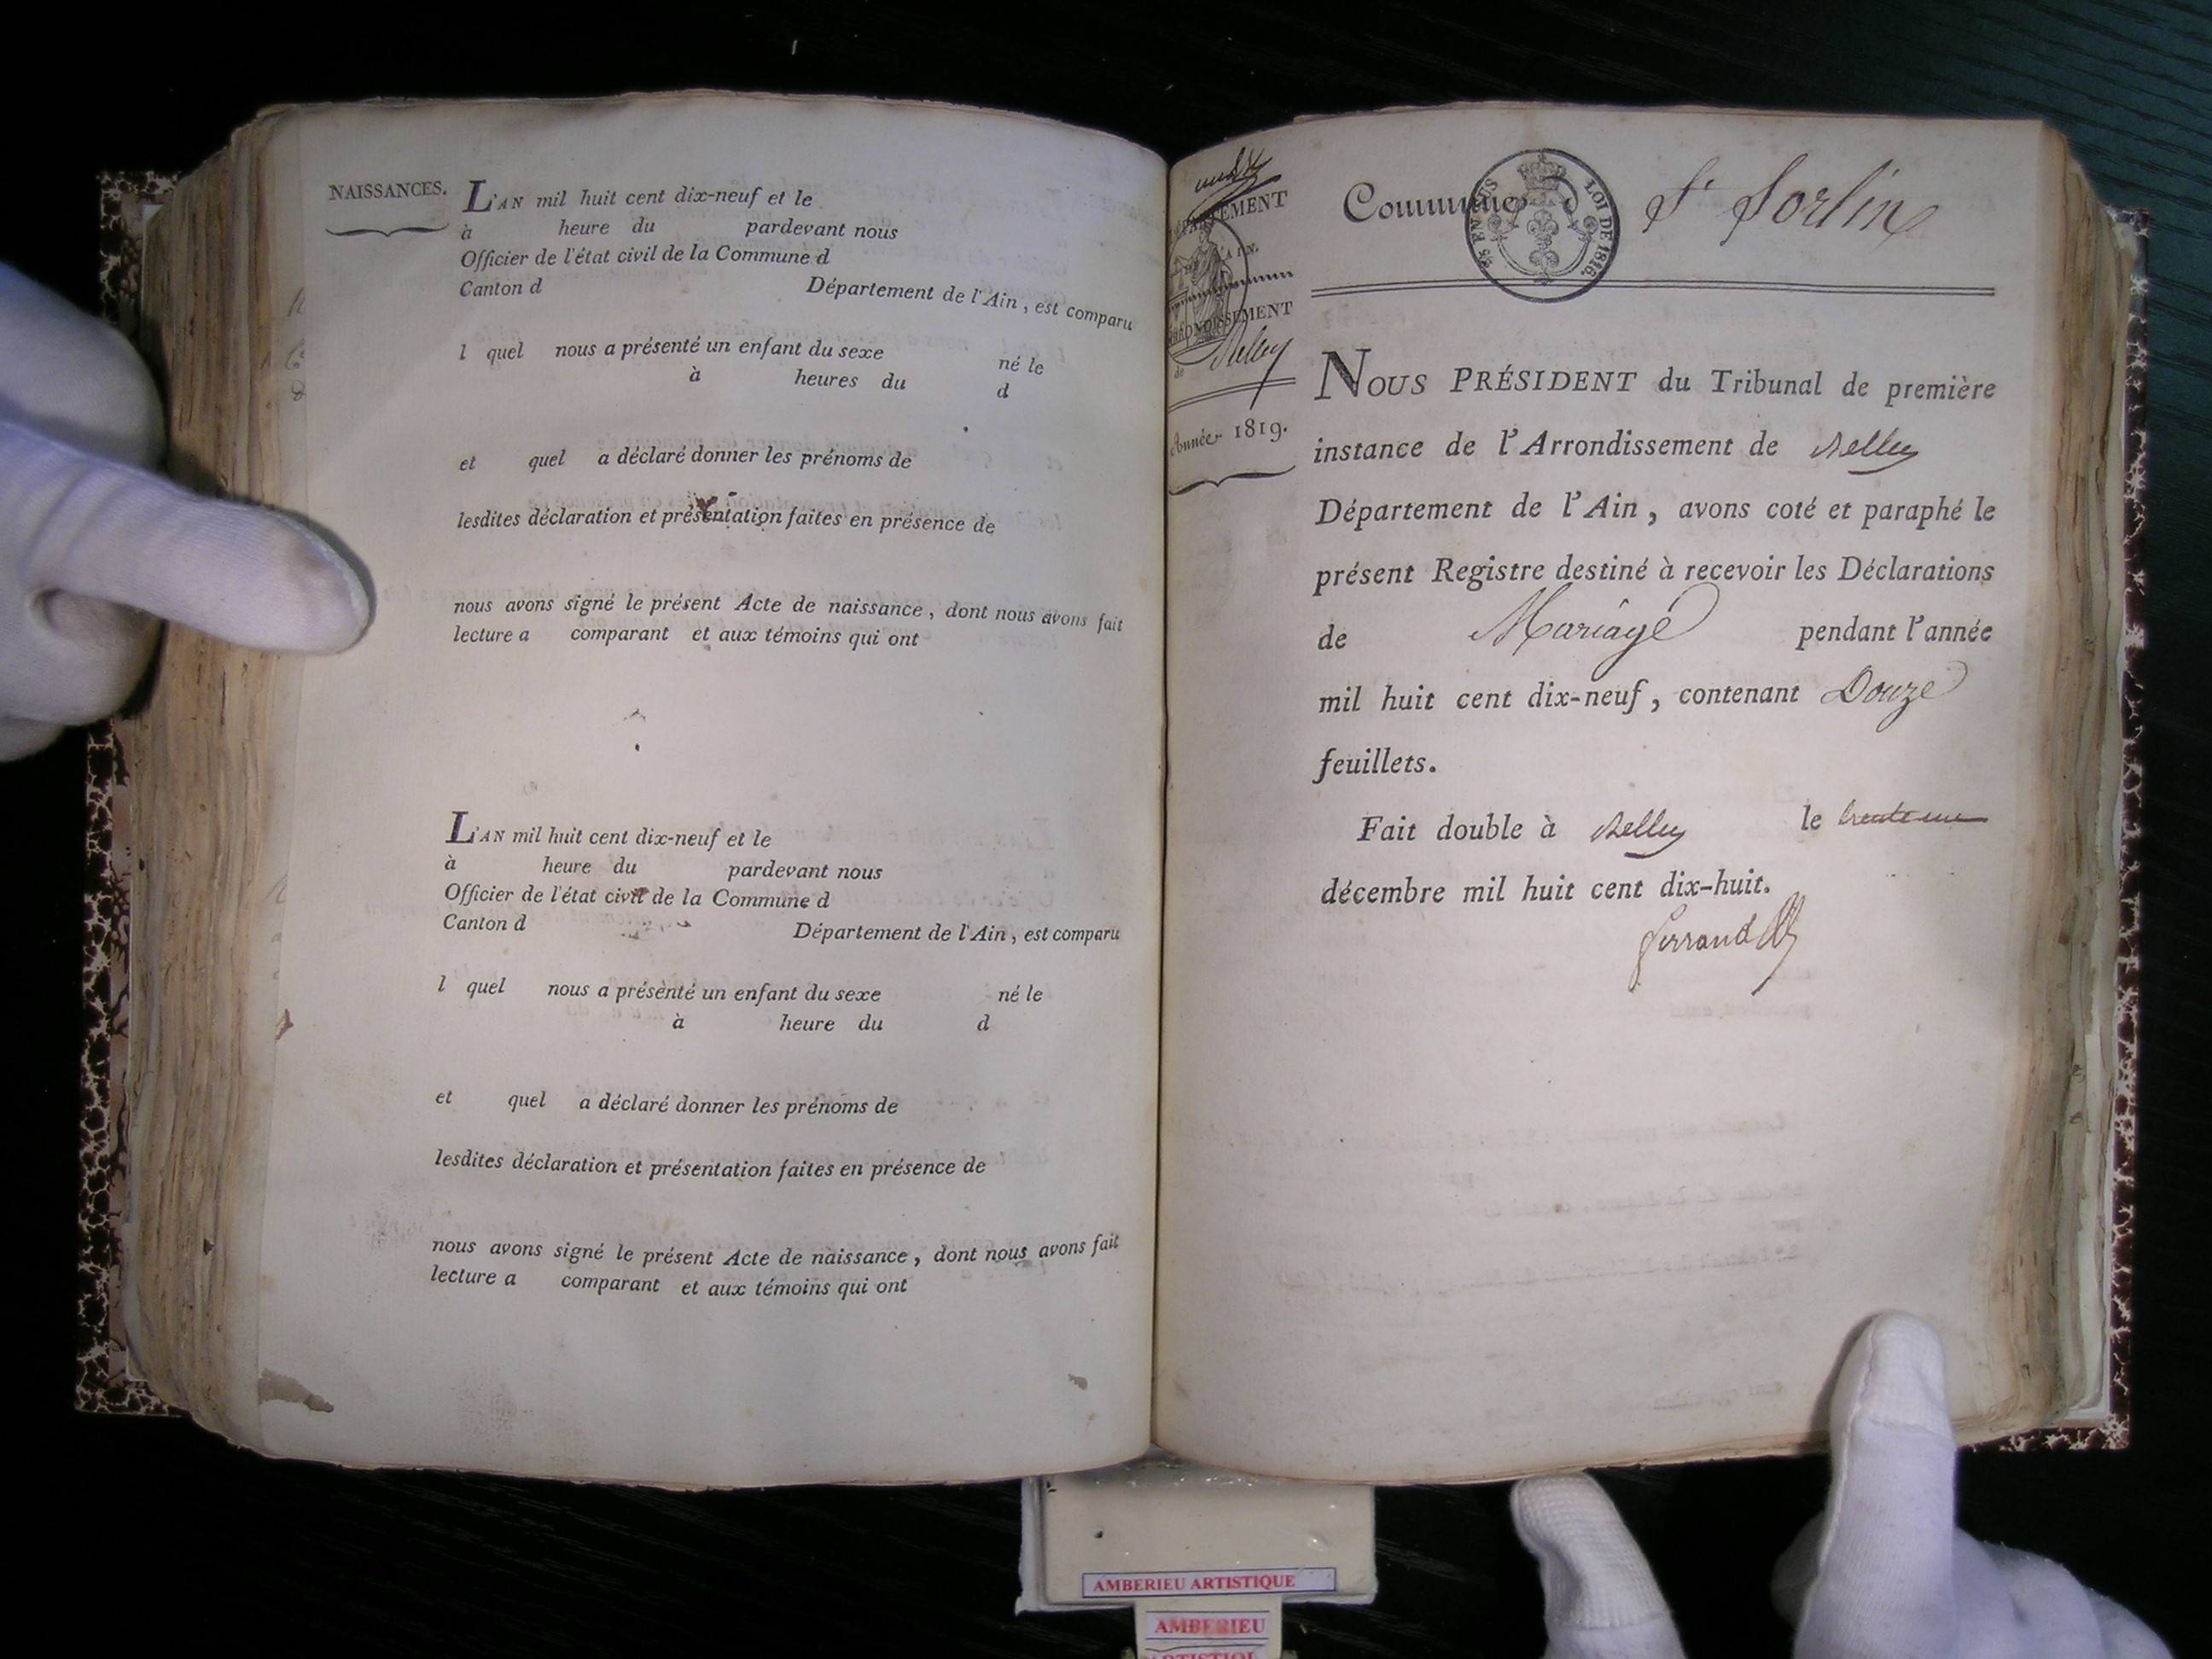 NAISSANCES.
L'AN mil huit cent dix-neuf et le
à heure du pardevant nous
Officier de l'état civil de la Commune d
Canton d Département de l'Ain, est comparu
l quel nous a présenté un enfant du sexe né le
à heures du d
et quel a déclaré donner les prénoms de
lesdites déclaration et présentation faites en présence de
nous avons signé le présent Acte de naissance, dont nous avons fait
lecture a comparant et aux témoins qui ont
L'AN mil huit cent dix-neuf et le
à heure du pardevant nous
Officier de l'état civil de la Commune d
Canton d Département de l'Ain, est comparu
l quel nous a présenté un enfant du sexe né le
à heure du d
et quel a déclaré donner les prénoms de
lesdites déclaration et présentation faites en présence de
nous avons signé le présent Acte de naissance, dont nous avons fait
lecture a comparant et aux témoins qui ont
de Belley
Année 1819.
Commune St Sorlin
LOI DE 1816.
NOUS PRÉSIDENT du Tribunal de première
instance de l'Arrondissement de Belley
Département de l'Ain, avons coté et paraphé le
présent Registre destiné à recevoir les Déclarations
de Mariage pendant l'année
mil huit cent dix-neuf, contenant Douze
feuillets.
Fait double à Belley le trente un
décembre mil huit cent dix-huit.
Ferrand
AMBERIEU ARTISTIQUE
AMBERIEU
ARTISTIQUE